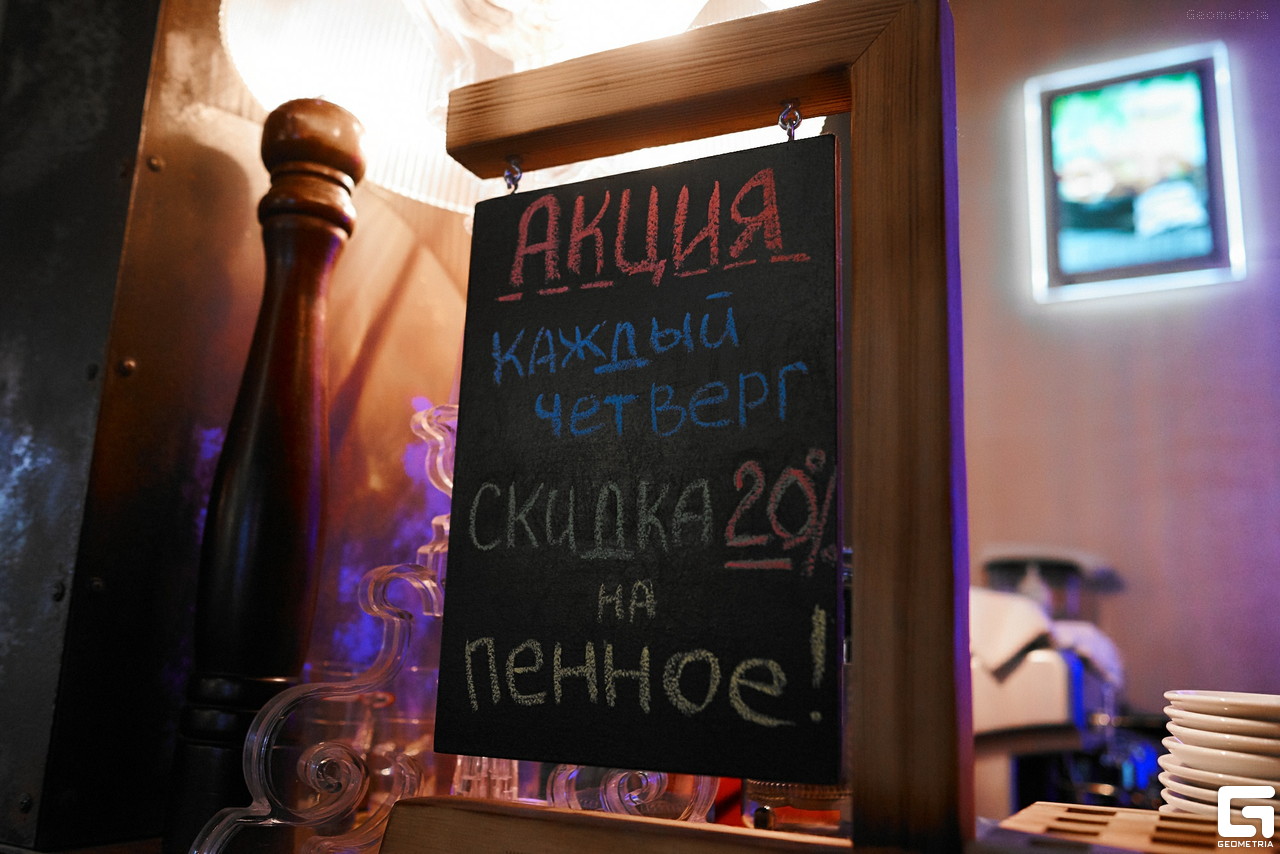 Geometria
АКЦИЯ
КАЖДЫЙ
ЧЕТВЕРГ
СКИДКА 20%
НА
ПЕННОЕ!
GEOMETRIA